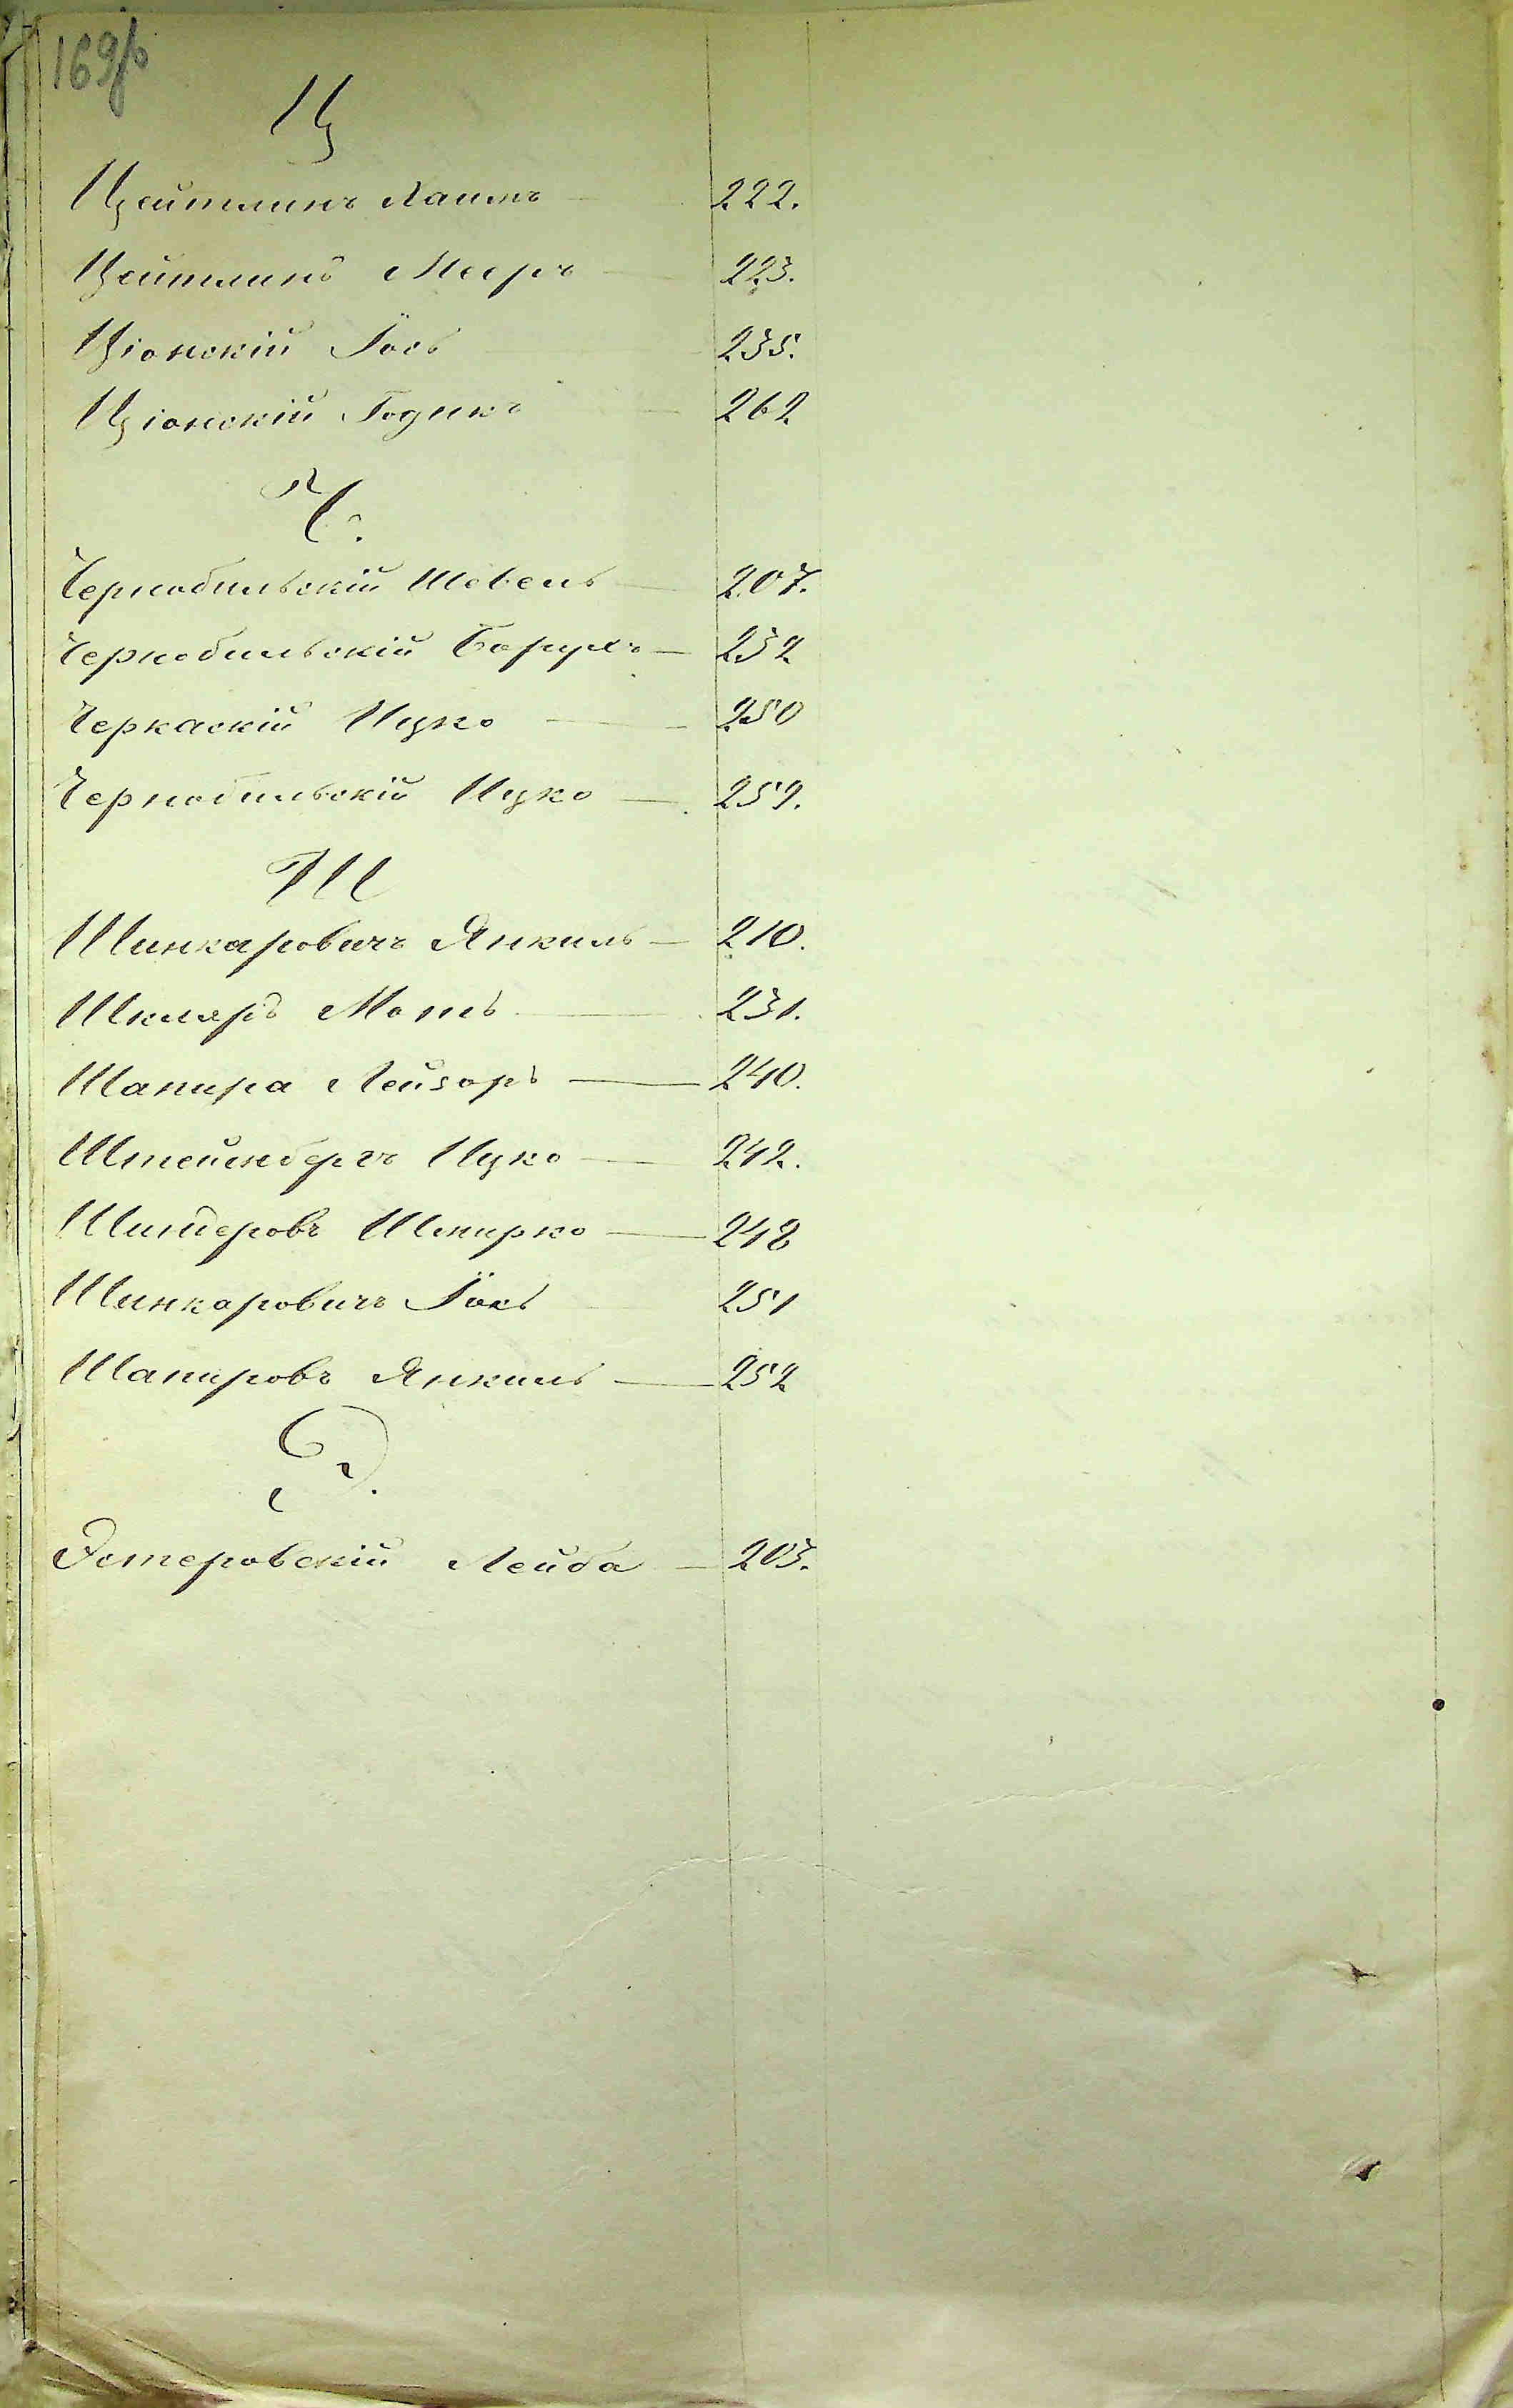 169об
Ц
Цейтлинъ Хаимъ — 222.
Цейтлинъ Мееръ — 223.
Ціонскій Іось — 235.
Ціонскій Годикъ — 262
Ч.
Чернобильскій Шевель — 207.
Чернобильскій Борухъ — 232
Черкаскій Ицко — 250
Чернобильскій Ицко — 259.
Ш
Шинкаровичъ Янкиль — 210.
Шкляръ Моть — 231.
Шапира Лейзоръ — 240.
Штейнбергъ Ицко — 242.
Шмирко — 248
Шинкаровичъ Іось — 251
Шапировъ Янкиль — 252
Э.
Эстеровскій Лейба — 203.